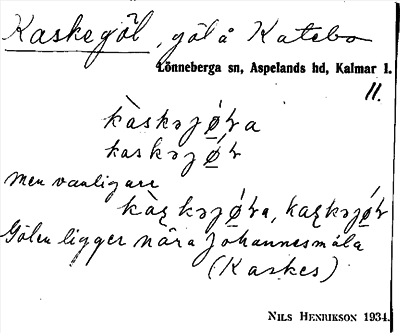 Kaskegöl, göl å Katebo
Lönneberga sn, Aspelands hd, Kalmar l.
11.
kàskəjǿ̠ɬa
kaskəjǿ̠ɬ
men vanligare
kàʂkəjǿ̠ɬa, kaʂkəjǿ̠ɬ
Gölen ligger nära Johannesmåla
(Kaskes)
NILS HENRIKSON 1934.